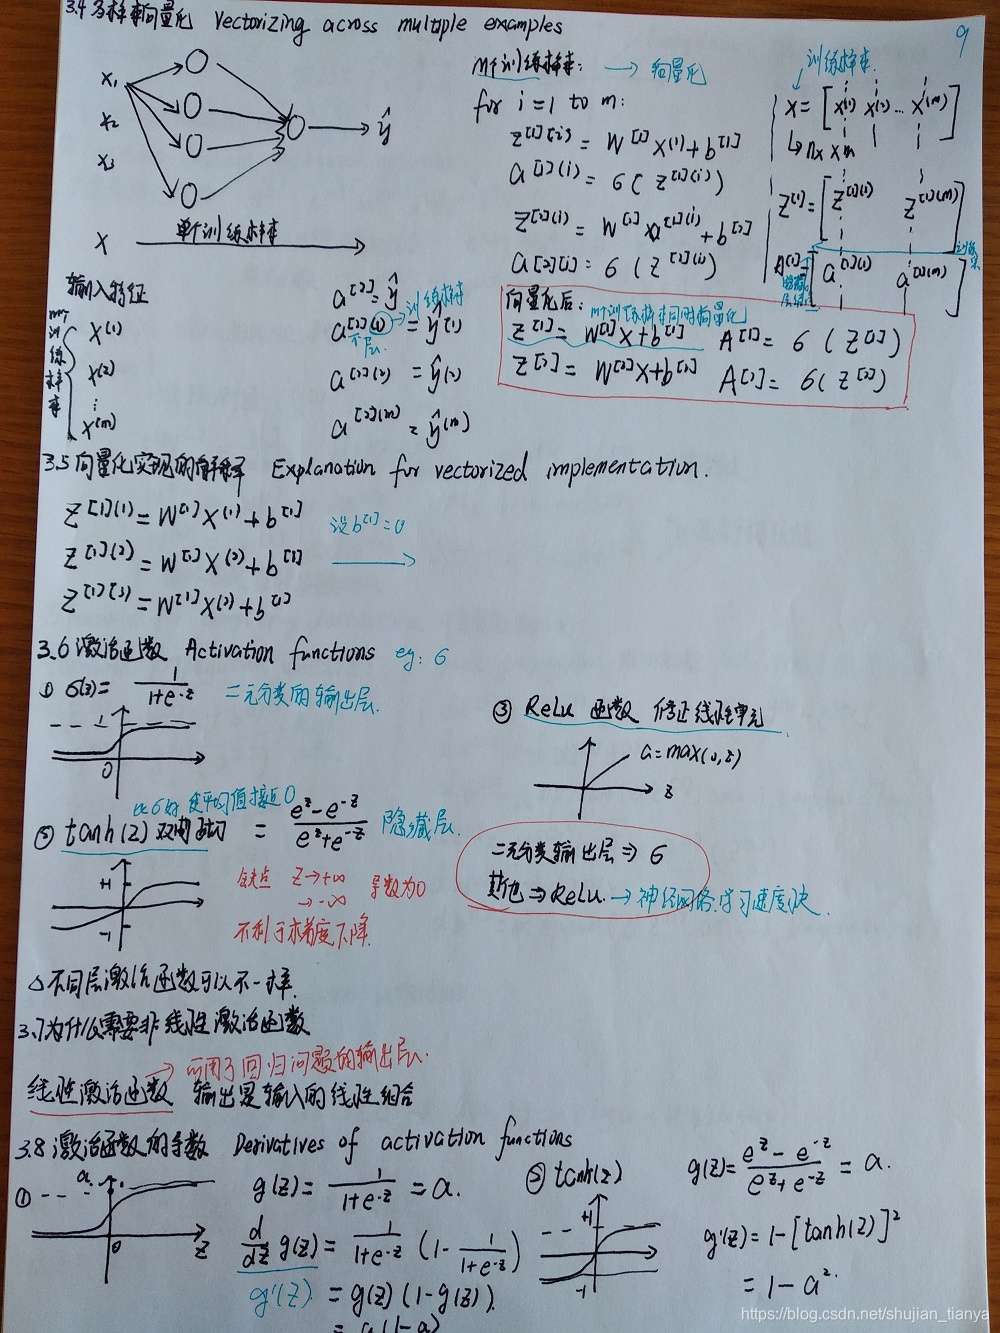 3.4 多样本向量化 Vectorizing across multiple examples
9
x1
x2
x3
ŷ
X 单个训练样本
m个训练样本: → 向量化
for i=1 to m:
z[1](i) = W[1]x(i)+b[1]
a[1](i) = σ(z[1](i))
z[2](i) = W[2]xa[1](i)+b[2]
a[2](i) = σ(z[2](i))
训练样本
X = [x(1) x(2) ... x(m)]
↳ nx × m
Z[1] = [z[1](1) z[1](m)]
A[1] = [a[1](1) a[1](m)]
输入特征
m个训练样本
X(1)
X(2)
⋮
X(m)
a[2] = ŷ
a[2](1) → 训练样本 = ŷ(1)
层
a[2](2) = ŷ(2)
a[2](m) = ŷ(m)
向量化后: m个训练样本同时向量化
Z[1] = W[1]X+b[1] A[1] = σ(Z[1])
Z[2] = W[2]X+b[2] A[2] = σ(Z[2])
3.5 向量化实现的解释 Explanation for vectorized implementation.
Z[1](1) = W[1]X(1)+b[1] 设b[1]=0
Z[1](2) = W[1]X(2)+b[1]
Z[1](3) = W[1]X(3)+b[1]
3.6 激活函数 Activation functions eg: σ
① σ(z) = 1/(1+e^-z) 二元分类的输出层.
1
0
比σ好 使平均值接近0
② tanh(z) 双曲正切 = (e^z-e^-z)/(e^z+e^-z) 隐藏层.
+1
-1
缺点 z→+∞ 导数为0
→-∞
不利于梯度下降.
③ ReLu 函数 修正线性单元
a=max(0,z)
z
二元分类输出层 ⇒ σ
其他 ⇒ ReLu. → 神经网络学习速度快.
△ 不同层激活函数可以不一样.
3.7 为什么需要非线性激活函数
→ 应用于回归问题的输出层.
线性激活函数 输出是输入的线性组合
3.8 激活函数的导数 Derivatives of activation functions
① a 1
0
z
g(z) = 1/(1+e^-z) = a.
d/dz g(z) = 1/(1+e^-z) (1- 1/(1+e^-z))
g'(z) = g(z)(1-g(z)).
= a(1-a)
② tanh(z)
+1
-1
g(z) = (e^z-e^-z)/(e^z+e^-z) = a.
g'(z) = 1-[tanh(z)]²
= 1-a².
https://blog.csdn.net/shujian_tianya